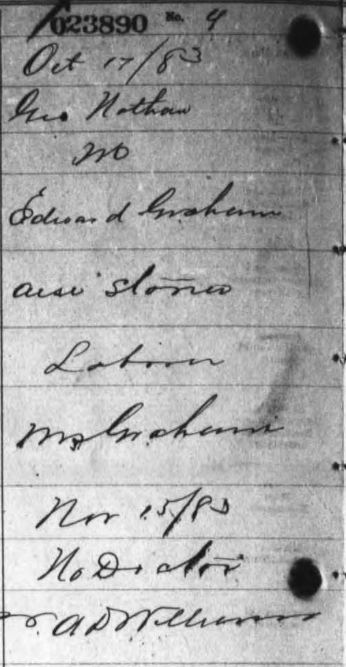 023890 No. 4
Oct 17/83
Geo Nathan
M
Edward Graham
Stones
Labourer
Mrs Graham
Nov 15/83
No Doctor
A D Williams